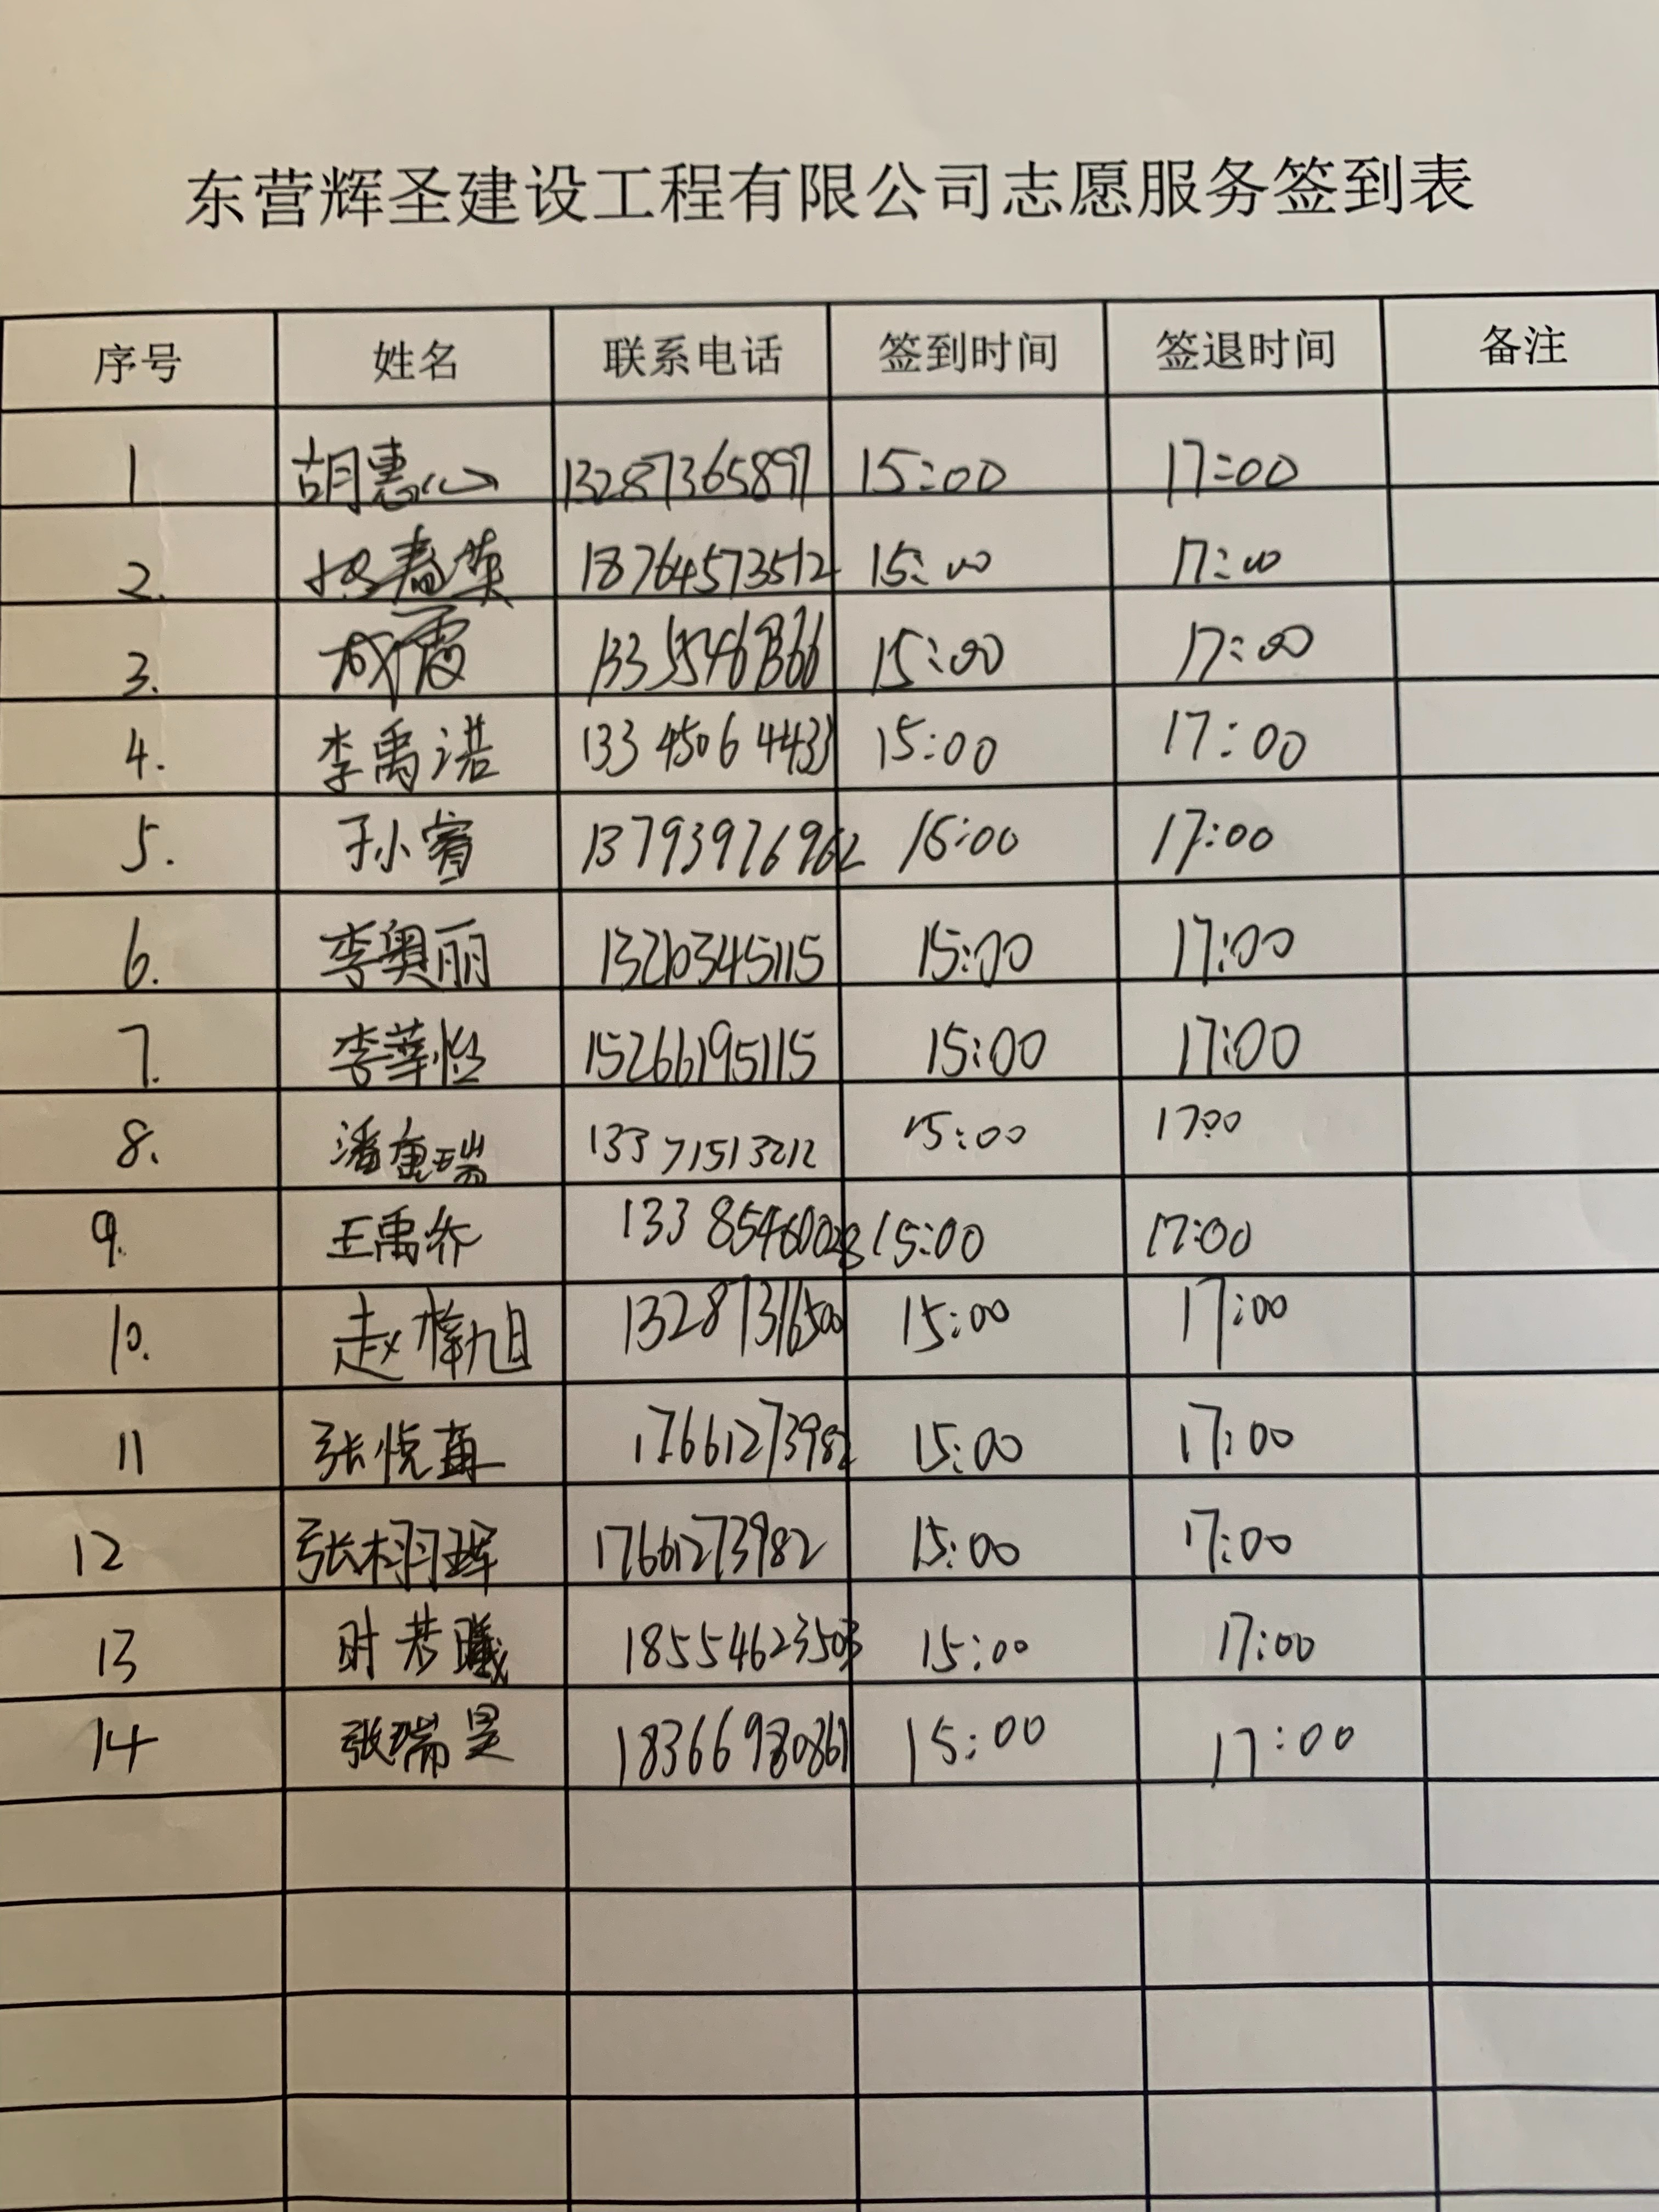 东营辉圣建设工程有限公司志愿服务签到表
序号 姓名 联系电话 签到时间 签退时间 备注
1 胡惠心 13287365897 15:00 17:00
2. 春英 18764573512 15:00 17:00
3. 成霞 15:00 17:00
4. 李禹诺 13345064433 15:00 17:00
5. 于小睿 13793976962 15:00 17:00
6. 李奥丽 15:00 17:00
7. 李华怡 15266195115 15:00 17:00
8. 潘重瑞 13371513212 15:00 17:00
9. 王禹乔 13385460028 15:00 17:00
10. 赵梓旭 13287316500 15:00 17:00
11 张悦 17661273982 15:00 17:00
12 张栩珲 17661273982 15:00 17:00
13 时曦 18554623503 15:00 17:00
14 张瑞昊 18366980861 15:00 17:00